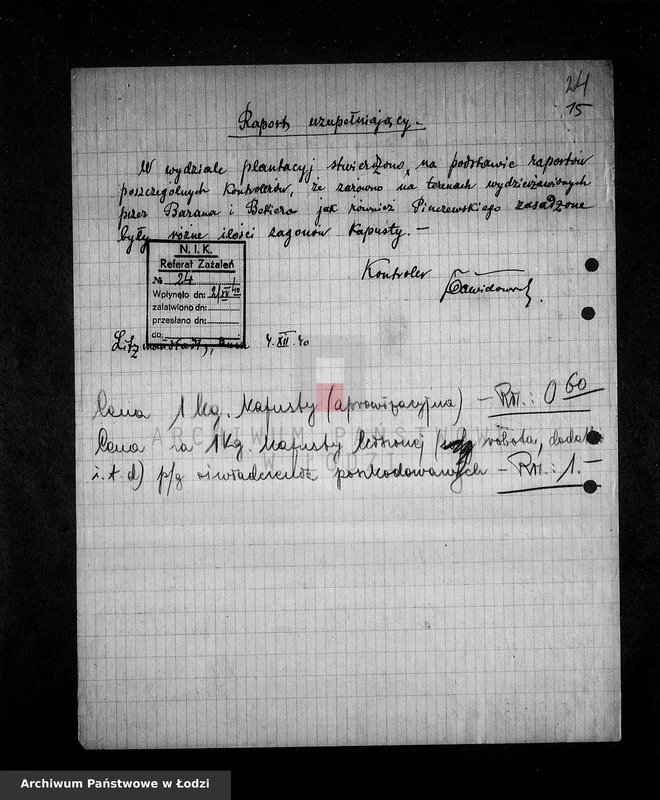 24
15
Raport uzupełniający. –
W wydziale plantacyj stwierdzono, na podstawie raportów
poszczególnych Kontrolerów, że zarówno na terenach wydzierżawionych
przez Barana i Bekiera jak również Pinczewskiego zasadzone
były różne ilości zagonów kapusty. –
N. I. K.
Referat Zażaleń
№ 24
Wpłynęło dn: 2/XII 40
załatwiono dn:
przesłano dn:
do:
Kontroler Dawidowicz.
Litzmannstadt, dnia 4. XII 40
Cena 1 kg. Kapusty (aprowizacyjna) – RM.: 0 60
ARCHIWUM PAŃSTWOWE
W ŁODZI
Cena za 1 Kg. Kapusty kiszonej ( robota, dodatki
i. t. d) p/g oświadczenia poszkodowanych – RM.: 1. –
Archiwum Państwowe w Łodzi